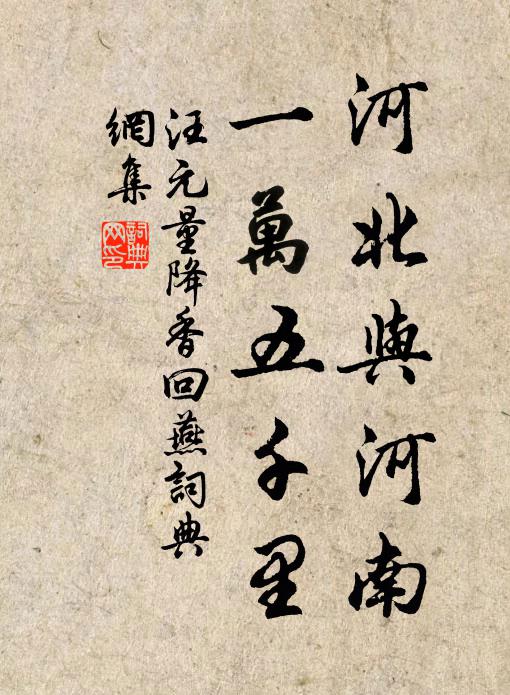 河北與河南
一萬五千里
汪元量降香回燕詞典
網集
詞典网印